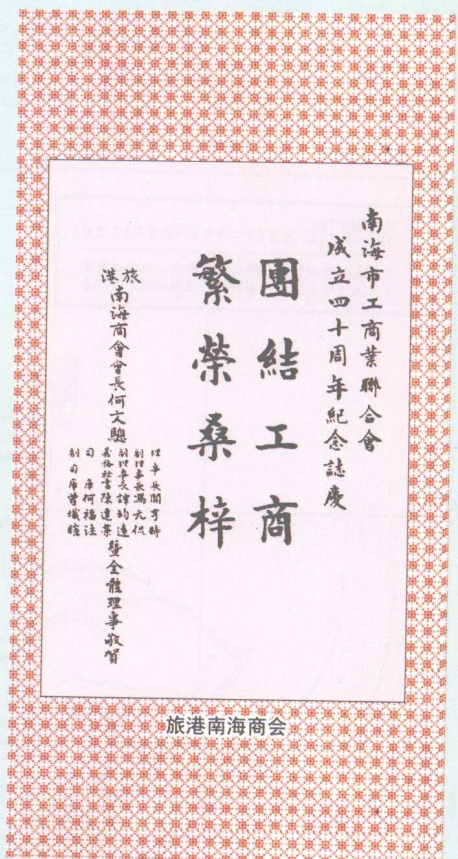 南海市工商業聯合會
成立四十周年紀念誌慶
團結工商
繁榮桑梓
旅港南海商會會長何文驄
理事長關亨時
副理事長馮元侃
副理事長譚均逵
義務秘書陳達榮
司庫何福注
副司庫曾熾暄
暨全體理事敬賀
旅港南海商会